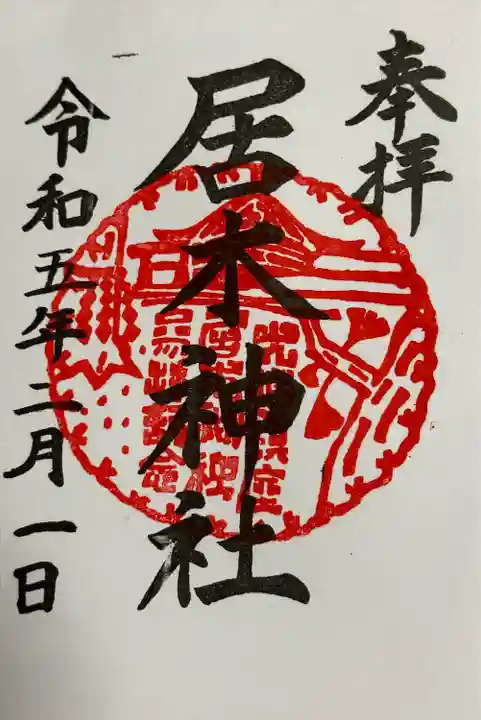 奉拝
居木神社
令和五年二月一日